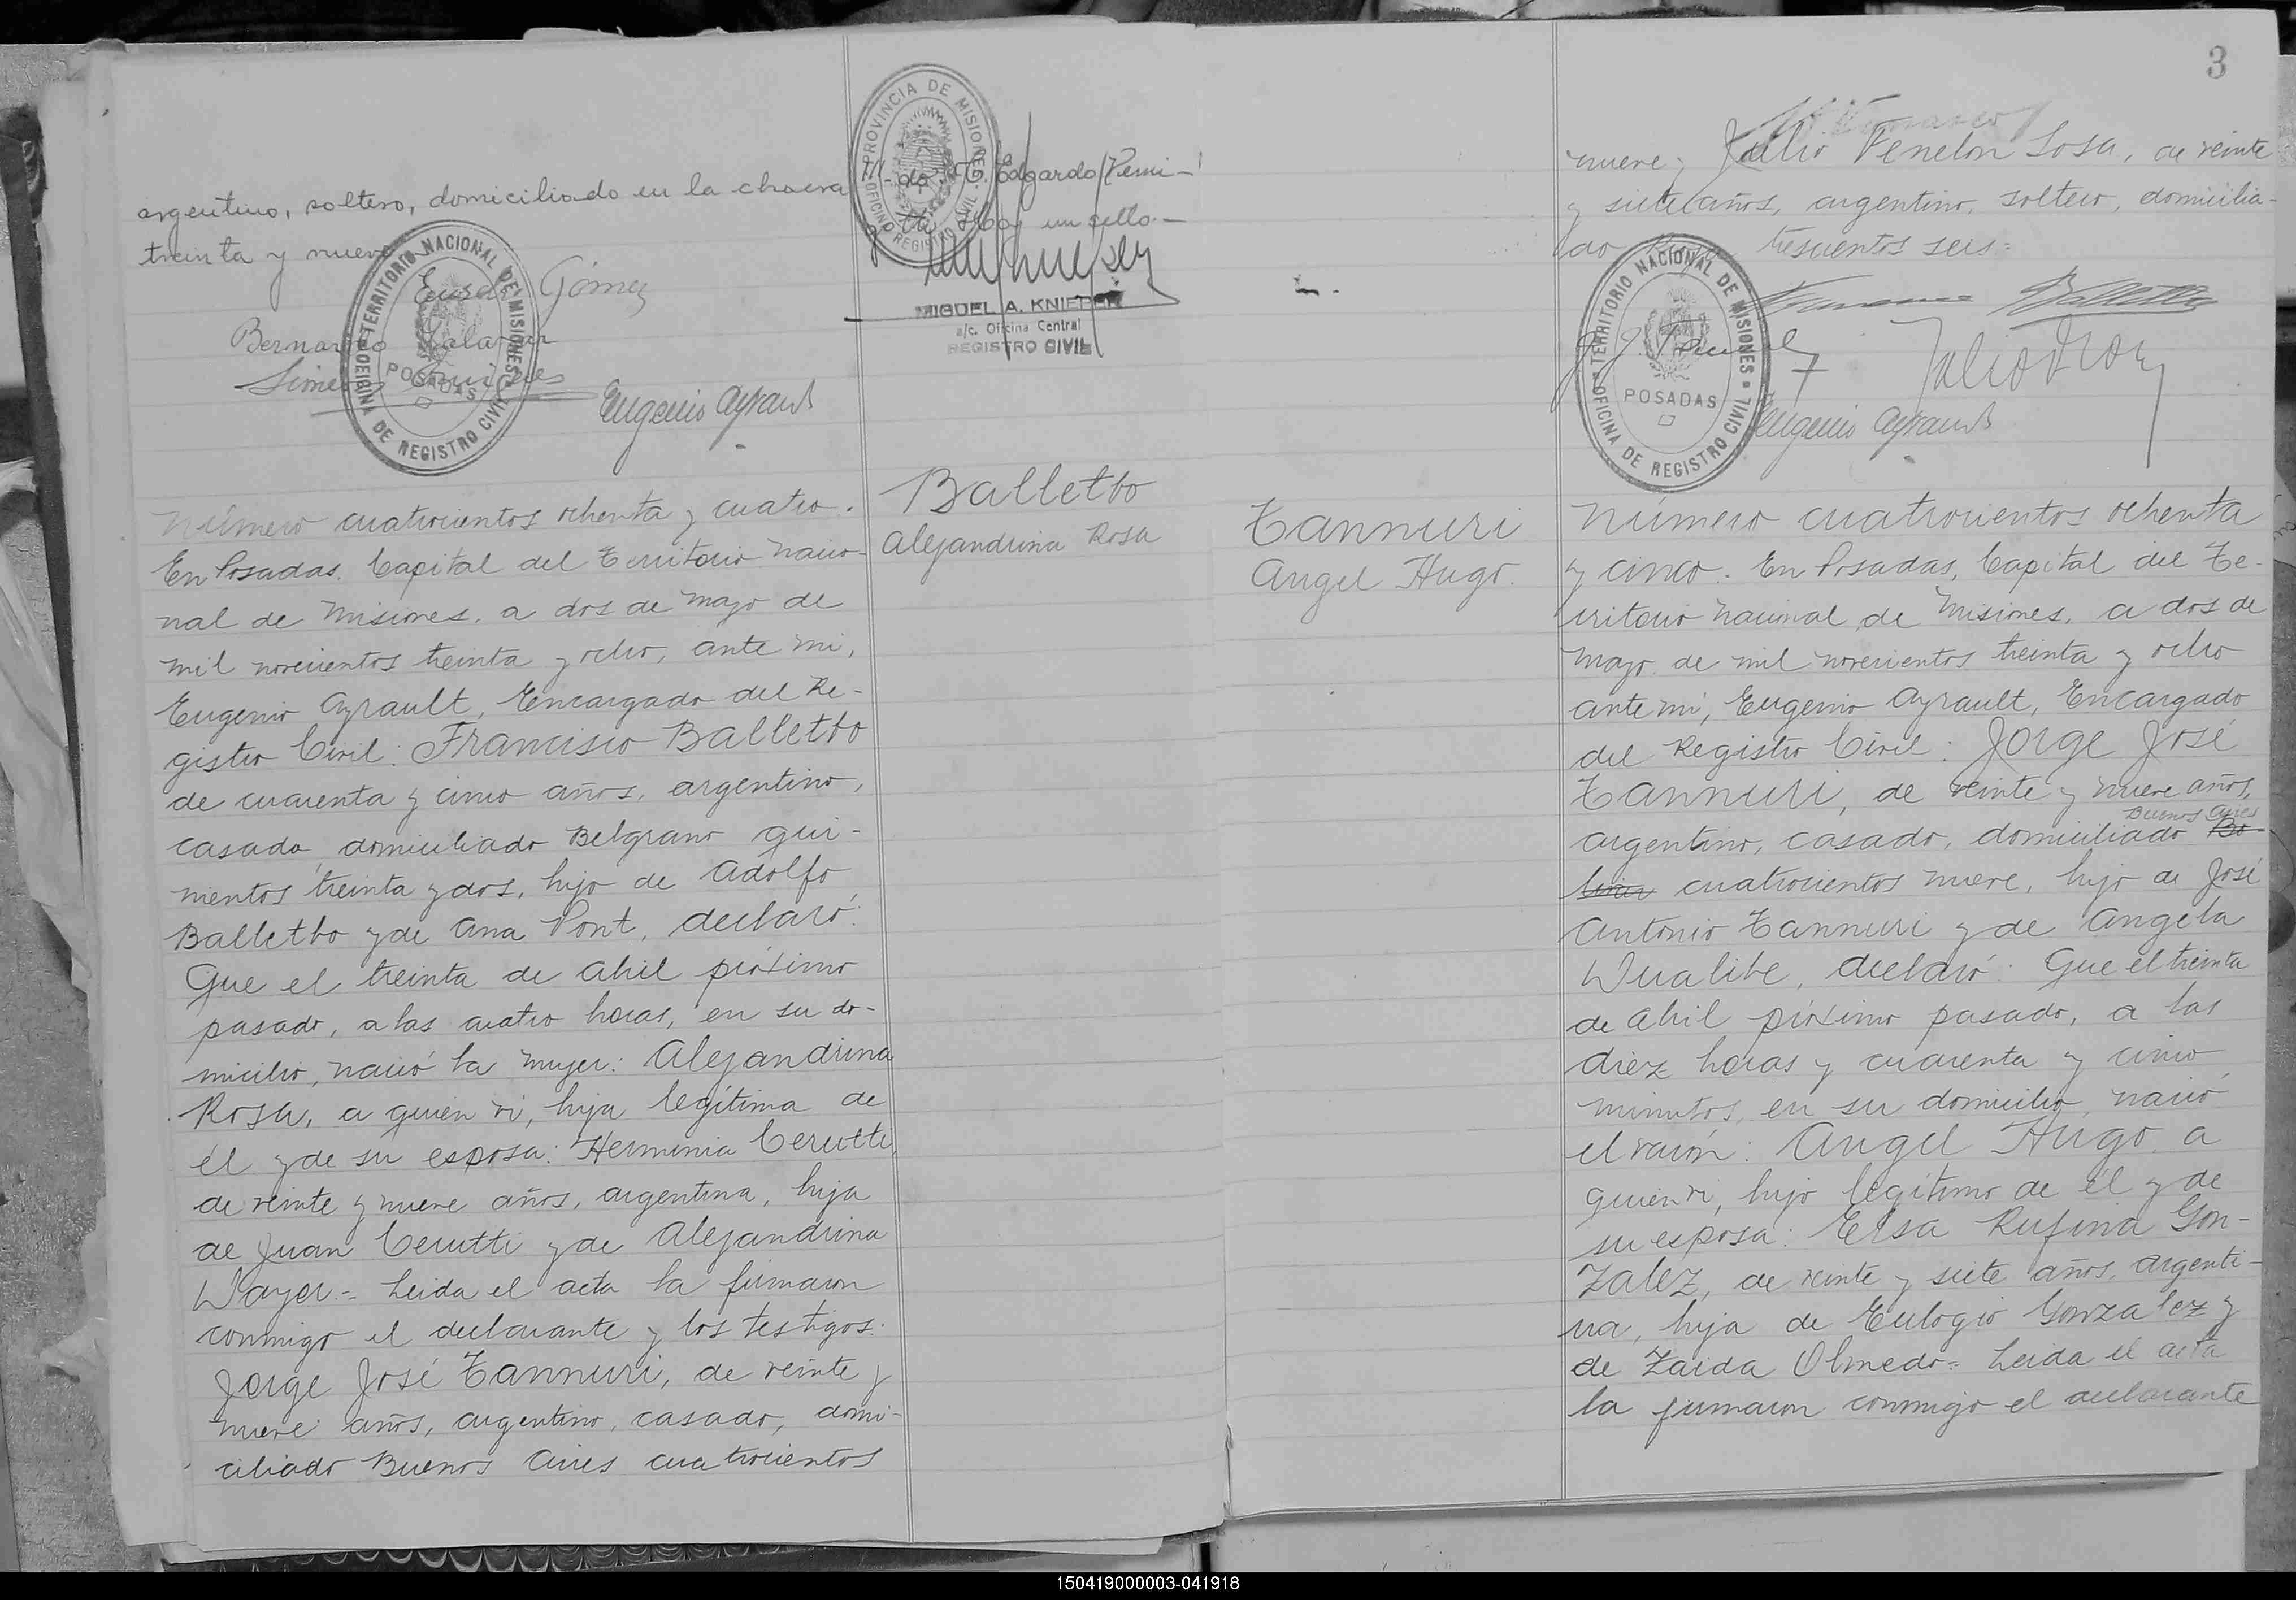 argentino, soltero, domiciliado en la chacra
treinta y nueve
Gómez
Bernardo Salazar
Eugenio Ayrault
TERRITORIO NACIONAL DE MISIONES
POSADAS
OFICINA DE REGISTRO CIVIL
PROVINCIA DE MISIONES
OFICINA REGISTRO CIVIL
Edgardo
Hay un sello.-
MIGUEL A. KNIEPER
a/c. Oficina Central
REGISTRO CIVIL
Balletbo
Alejandrina Rosa
Número cuatrocientos ochenta y cuatro.
En Posadas, Capital del Territorio Nacio-
nal de Misiones, a dos de Mayo de
mil novecientos treinta y ocho, ante mi,
Eugenio Ayrault, Encargado del Re-
gistro Civil: Francisco Balletbo
de cuarenta y cinco años, argentino,
casado, domiciliado Belgrano qui-
nientos treinta y dos, hijo de Adolfo
Balletbo y de Ana Pont, declaró:
Que el treinta de Abril próximo
pasado, a las cuatro horas, en su do-
micilio, nació la mujer: Alejandrina
Rosa, a quien vi, hija legítima de
él y de su esposa: Herminia Cerutti,
de veinte y nueve años, argentina, hija
de Juan Cerutti y de Alejandrina
Wayer.= Leida el acta la firmaron
conmigo el declarante y los testigos:
Jorge José Tannuri, de veinte y
nueve años, argentino, casado, domi-
ciliado Buenos Aires cuatrocientos
3
nueve y Julio Fenelon Sosa, de veinte
y siete años, argentino, soltero, domicilia-
do trescientos seis=
Balletbo
Eugenio Ayrault
TERRITORIO NACIONAL DE MISIONES
POSADAS
OFICINA DE REGISTRO CIVIL
Tannuri
Angel Hugo.
Número cuatrocientos ochenta
y cinco. En Posadas, Capital del Te-
rritorio Nacional de Misiones, a dos de
Mayo de mil novecientos treinta y ocho
ante mi, Eugenio Ayrault, Encargado
del Registro Civil: Jorge José
Tannuri, de veinte y nueve años,
Buenos Aires
argentino, casado, domiciliado Bo-
livar cuatrocientos nueve, hijo de José
Antonio Tannuri y de Angela
Wualibe, declaró: Que el treinta
de Abril próximo pasado, a las
diez horas y cuarenta y cinco
minutos, en su domicilio, nació
el varón: Angel Hugo, a
quien vi, hijo legítimo de él y de
su esposa: Elsa Rufina Gon-
zalez, de veinte y siete años, argenti-
na, hija de Eulogio Gonzalez y
de Zaida Olmedo= Leida el acta
la firmaron conmigo el declarante
150419000003-041918